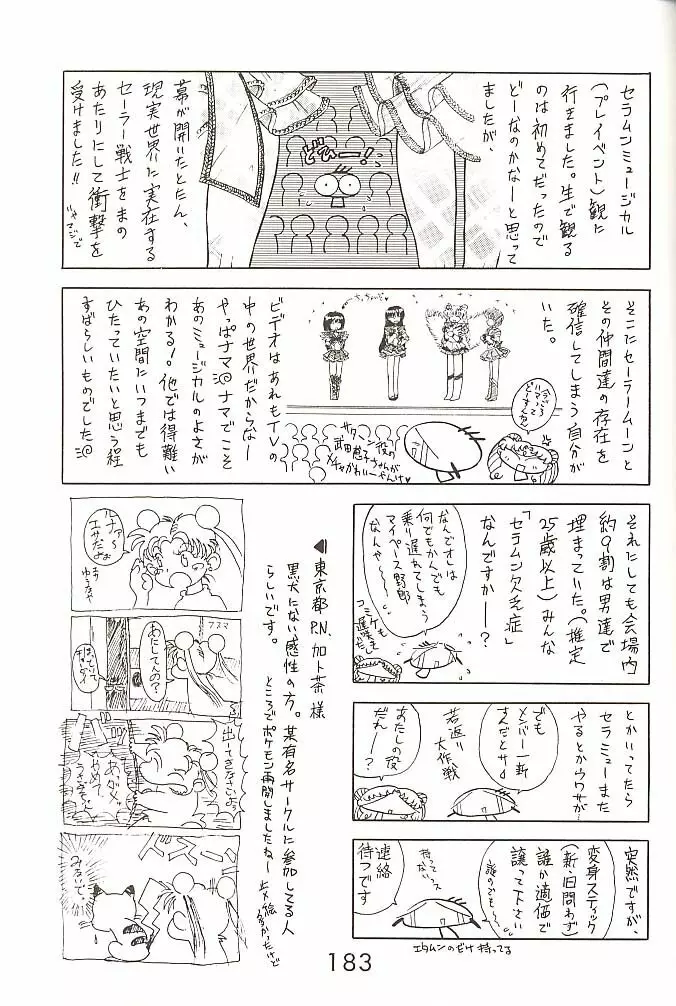 セラムンミュージカル
(プレイベント)観に
行きました。生で観る
のは初めてだったので
どーなのかなーと思って
ましたが、
どでーー!
幕が開いたとたん、
現実世界に実在する
セーラー戦士をまの
あたりにして衝撃を
受けました!!
そこにセーラームーンと
その仲間達の存在を
確信してしまう自分が
いた。
サターン役の
武田恵子ちゃんが
メチャかわいーやんけ♡
ビデオはあれもTVの
中の世界だからなー
やっぱナマ◎ナマでこそ
あのミュージカルのよさが
わかる!他では得難い
あの空間にいつまでも
ひたっていたいと思う程
すばらしいものでした◎
それにしても会場内
約9割は男達で
埋まっていた。(推定
25歳以上)みんな
「セラムン欠乏症」
なんですかー?
なんでオレは
何でもかんでも
乗り遅れてしまう
マイペース野郎
なんやー
コミケも
遅咲き
だしも
とかいってたら
セラミューまた
やるとかウワサが…
でも
メンバー一新
すんだとサ
若返り
大作戦
あたしの役
だれー?
突然ですが、
変身スティック
(新・旧問わず)
誰か適価で
譲って下さい
誰のでもー
持って
ないっス
連絡
待つです
エタムンのだけ持ってる
◀東京都 P.N. 加ト茶 様
黒犬にない感性の方。某有名サークルに参加してる人
らしいです。
ところでポケモン再開しましたねー
ルナァ〜
エサだよ
フスマ
あたしてんの?
出てきなさいよぅ
バババ
あダメッ
やめて
うさぎちゃん
ドスーン
みるいで。
183